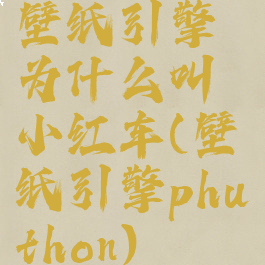 壁纸引擎
为什么叫
小红车(壁
纸引擎phu
thon)